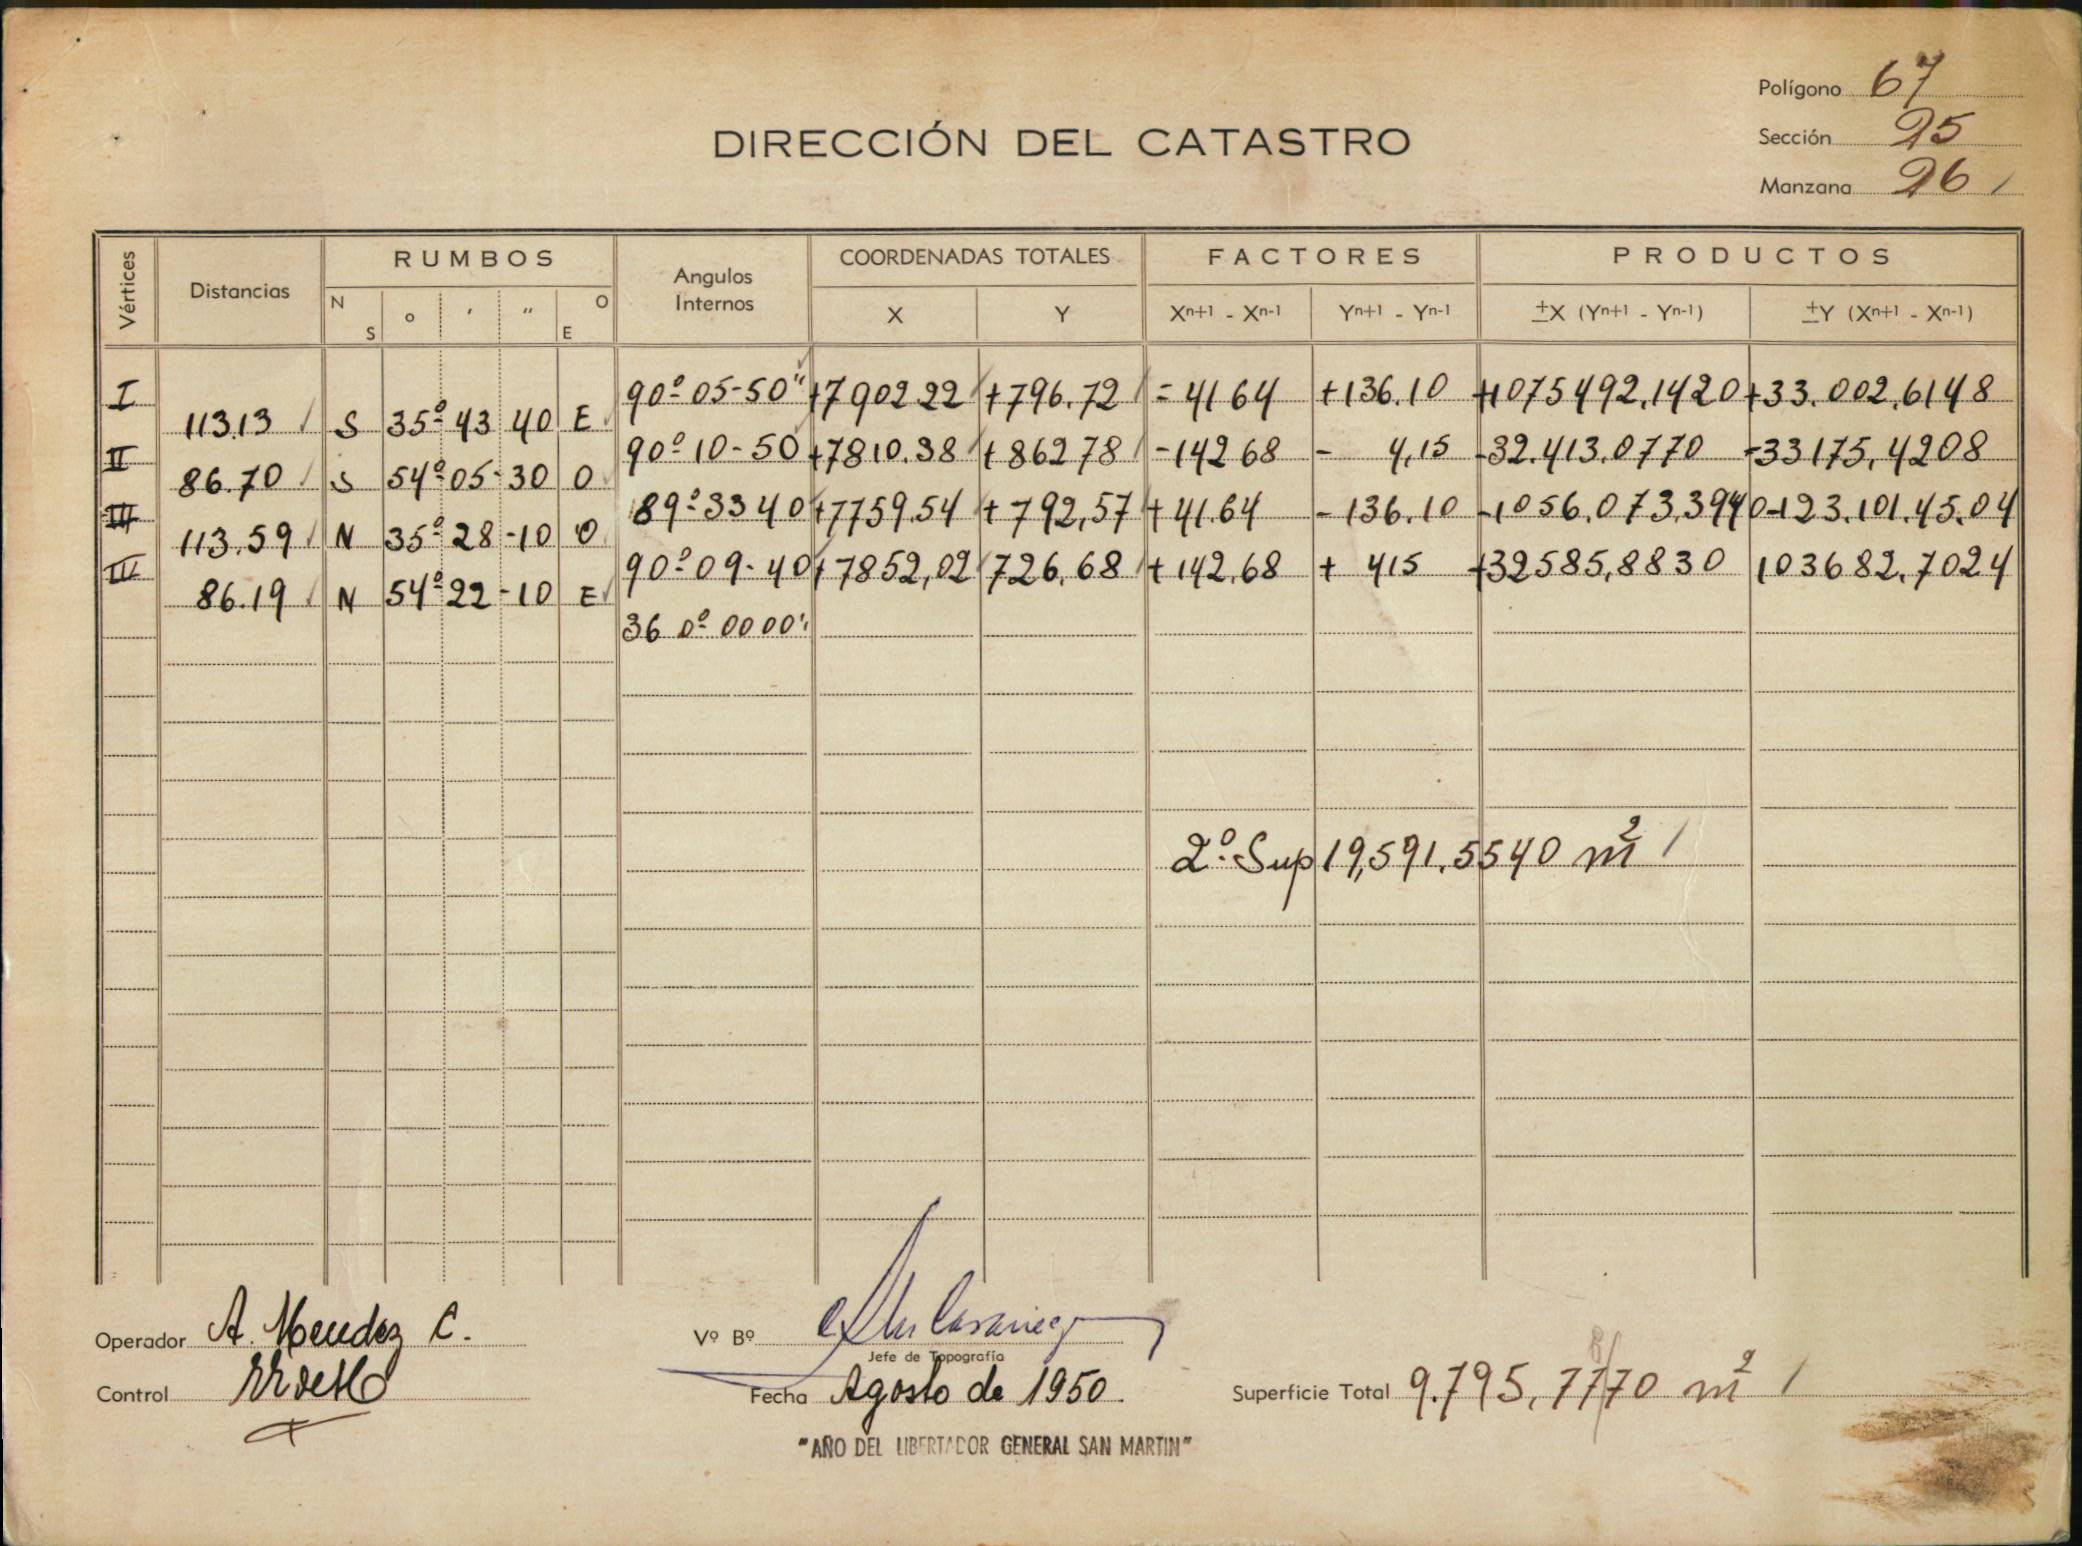 Polígono 67
DIRECCIÓN DEL CATASTRO
Sección 25
Manzana 26
Vértices Distancias RUMBOS Angulos Internos COORDENADAS TOTALES FACTORES PRODUCTOS
N S o ' " O E X Y Xn+1 - Xn-1 Yn+1 - Yn-1 ±X (Yn+1 - Yn-1) ±Y (Xn+1 - Xn-1)
I 90º 05-50" +7902.22 +796.72 - 41 64 +136.10 +1075492,1420 +33.002,6148
113.13 S 35º 43 40 E
II 90º 10-50 +7810.38 +862 78 -142 68 - 4,15 -32.413.0770 -33175,4208
86.70 S 54º 05-30 O
III 89º 33 40 +7759.54 +792,57 +41.64 -136.10 -1056.073,3940 -123.101.45.04
113.59 N 35º 28-10 O
IV 90º 09-40 +7852,02 726,68 +142,68 + 415 +32585,8830 103682,7024
86.19 N 54º 22-10 E
36 0º 00 00"
2º Sup 19,591.5540 m²
Operador A. Mendez C.
Vº Bº
Jefe de Topografía
Control
Fecha Agosto de 1950.
Superficie Total 9.795,7770 m²
"AÑO DEL LIBERTADOR GENERAL SAN MARTIN"